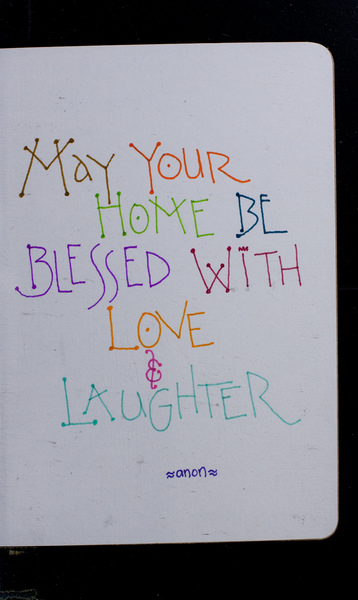 May YOUR
HOME BE
BLESSED WITH
LOVE
&
LAUGHTER
≈anon≈